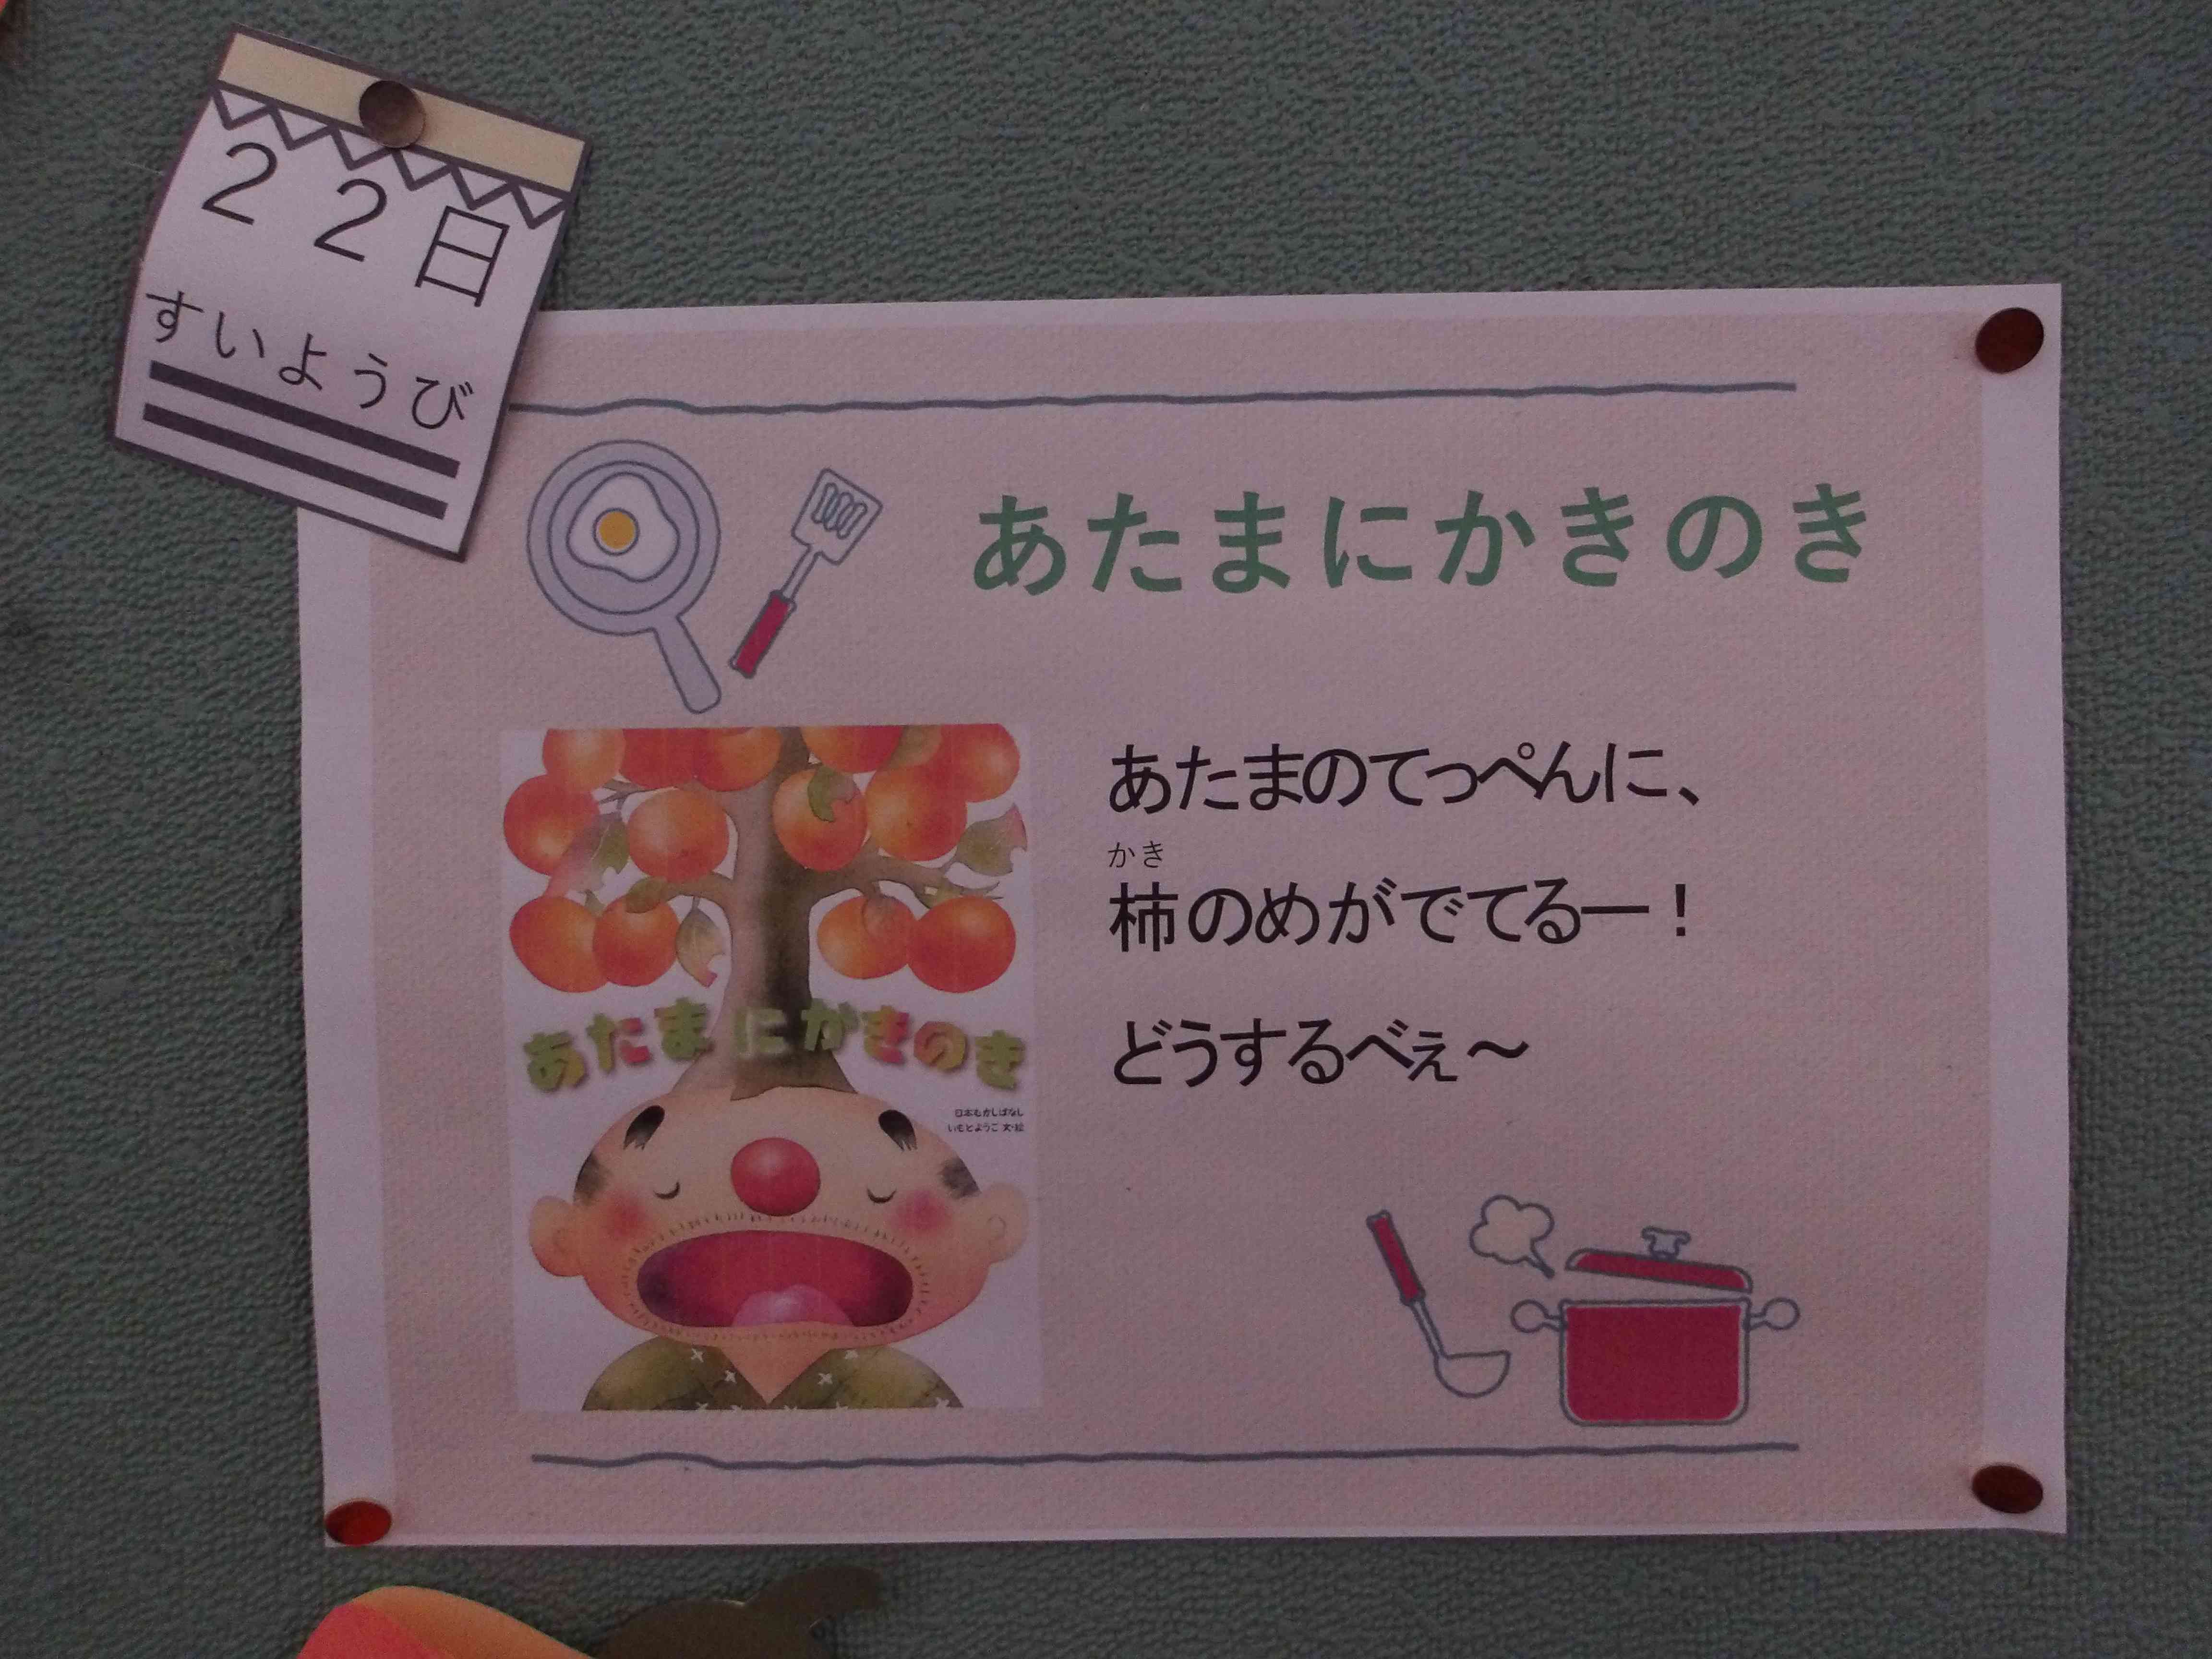 22日
すいようび
あたまにかきのき
あたまのてっぺんに、
かき
柿のめがでてるー!
どうするべぇ~
あたまにかきのき
日本むかしばなし
いもとようこ 文・絵